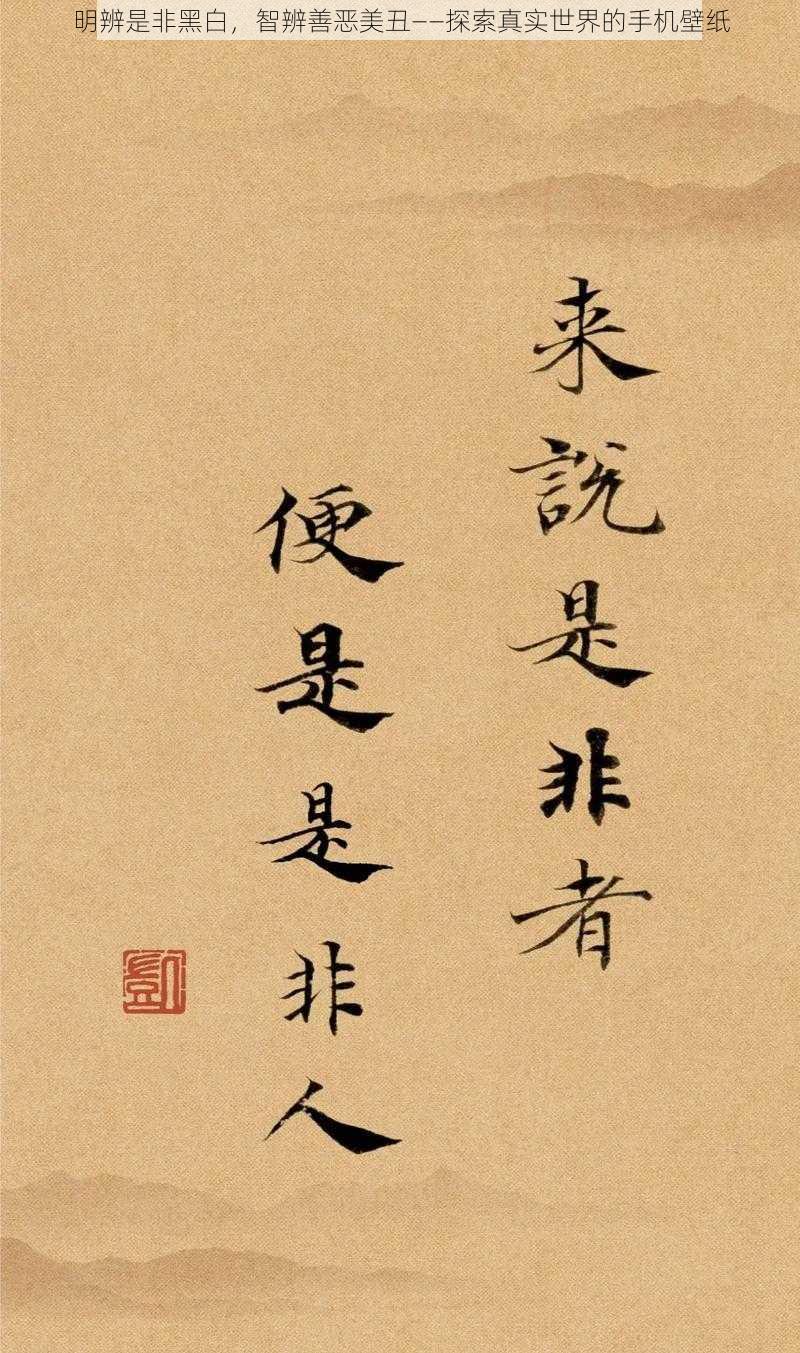 明辨是非黑白，智辨善恶美丑——探索真实世界的手机壁纸
来説是非者
便是是非人